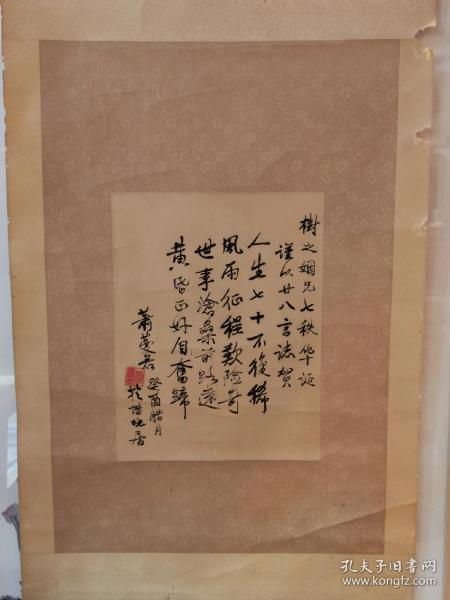 樹之姻兄七秩华诞
谨以廿八言誌贺
人生七十不復稀
風雨征程歎险奇
世事滄桑前路遠
黄昏正好自奮蹄
萧
癸酉腊月
於惜晚居
孔夫子旧书网
www.kongfz.com